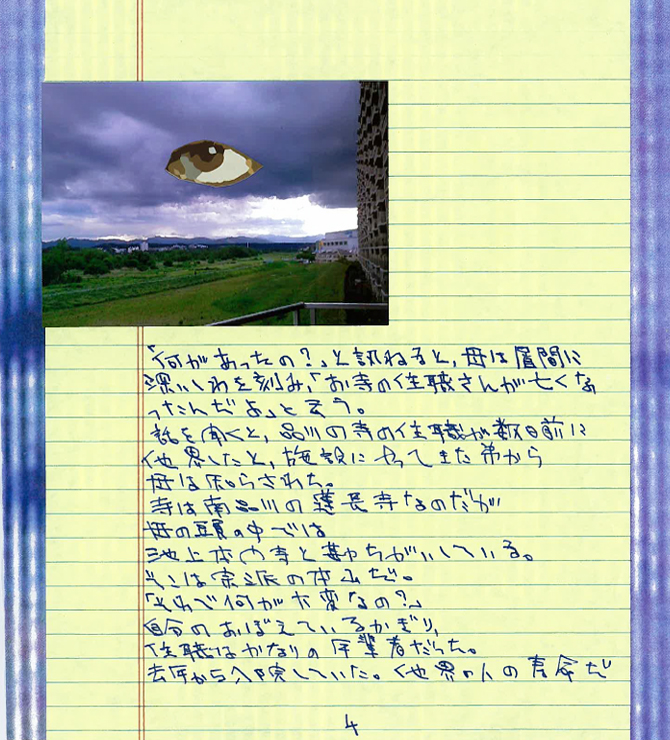 「何があったの?」と訊ねると、母は眉間に
深いしわを刻み、「お寺の住職さんが亡くな
ったんだよ」と云う。
話を聞くと、品川の寺の住職が数日前に
他界したと、施設にやってきた弟から
母は知らされた。
寺は南品川の蓮長寺なのだが
母の頭の中では
池上本門寺と勘ちがいしている。
そこは宗派の本山だ。
「それで何が大変なの?」
自分のおぼえているかぎり、
住職はかなりの年輩者だった。
去年から入院していた。他界の人の寿命だ
4